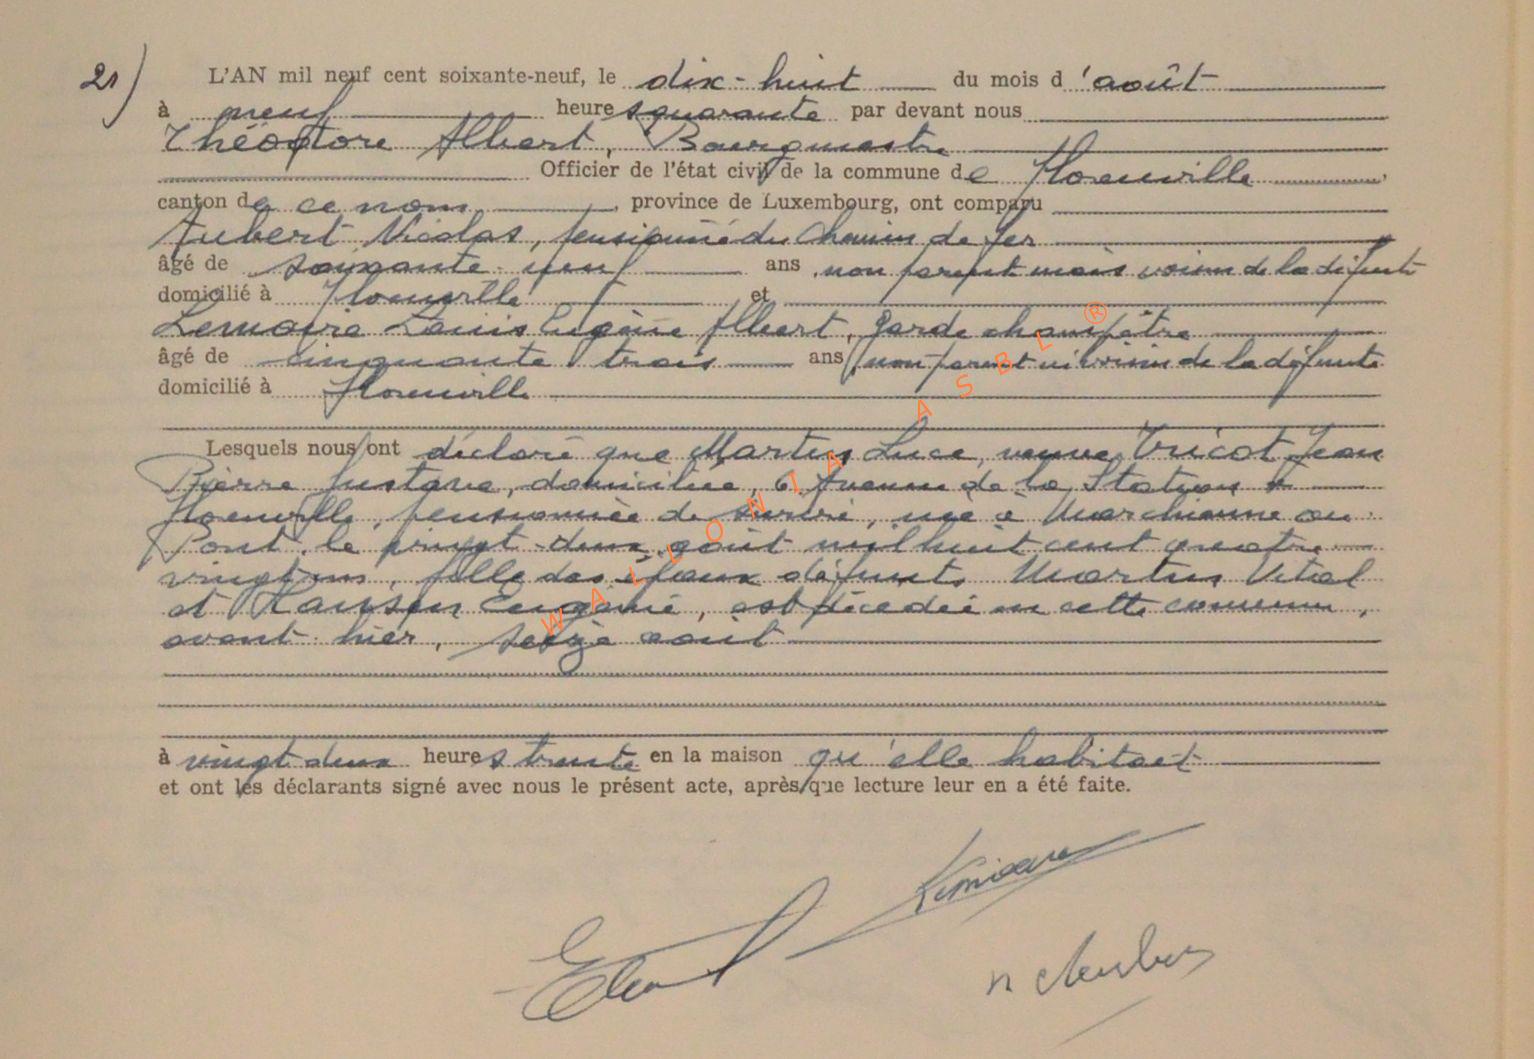 21)
L'AN mil neuf cent soixante-neuf, le dix-huit du mois d'août
à neuf heures quarante par devant nous
Théodore Albert, Bourgmestre
Officier de l'état civil de la commune de Florenville,
canton de ce nom, province de Luxembourg, ont comparu
Aubert Nicolas, pensionné du chemin de fer
âgé de soixante neuf ans, non parent mais voisin de la défunte
domicilié à Florenville et
Lemaire Louis Eugène Albert, garde champêtre
âgé de cinquante trois ans, non parent ni voisin de la défunte
domicilié à Florenville
Lesquels nous ont déclaré que Martin Luce, veuve Tricot Jean
Pierre Gustave, domiciliée, 6, Avenue de la Station à
Florenville, pensionnée de survie, née à Marchienne au
Pont, le vingt-deux août mil huit cent quatre
vingt , fille des époux défunts Martin Vital
et Eugénie, est décédée en cette commune,
avant-hier, seize août
à vingt deux heures trente en la maison qu'elle habitait
et ont les déclarants signé avec nous le présent acte, après que lecture leur en a été faite.
WALLONIA ASBL ®